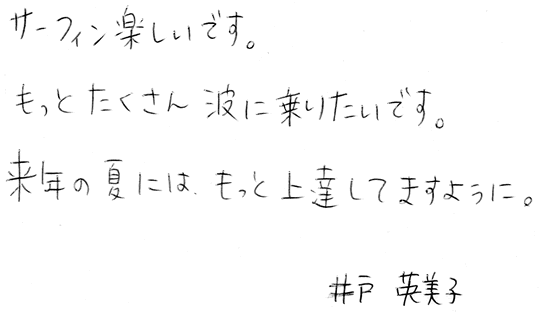 サーフィン楽しいです。
もっとたくさん波に乗りたいです。
来年の夏には、もっと上達してますように。
井戸 英美子